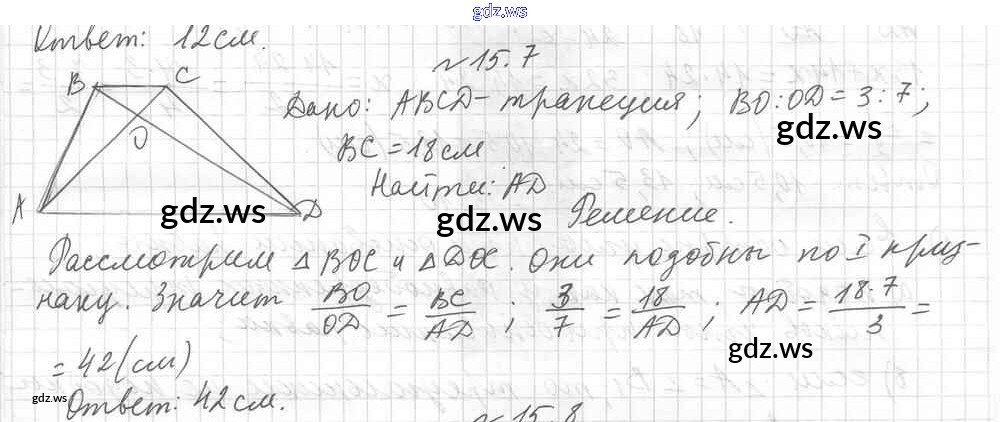 gdz.ws
Ответ: 12 см.
№ 15.7
B C
Дано: ABCD - трапеция; BO:OD = 3:7;
gdz.ws
O
BC = 18 см
Найти: AD
A D
gdz.ws gdz.ws
Решение.
Рассмотрим △ BOC и △ DOC. Они подобны по I приз-
наку. Значит BO/OD = BC/AD ; 3/7 = 18/AD ; AD = 18·7/3 =
gdz.ws
= 42 (см)
gdz.ws
Ответ: 42 см.
№ 15.8